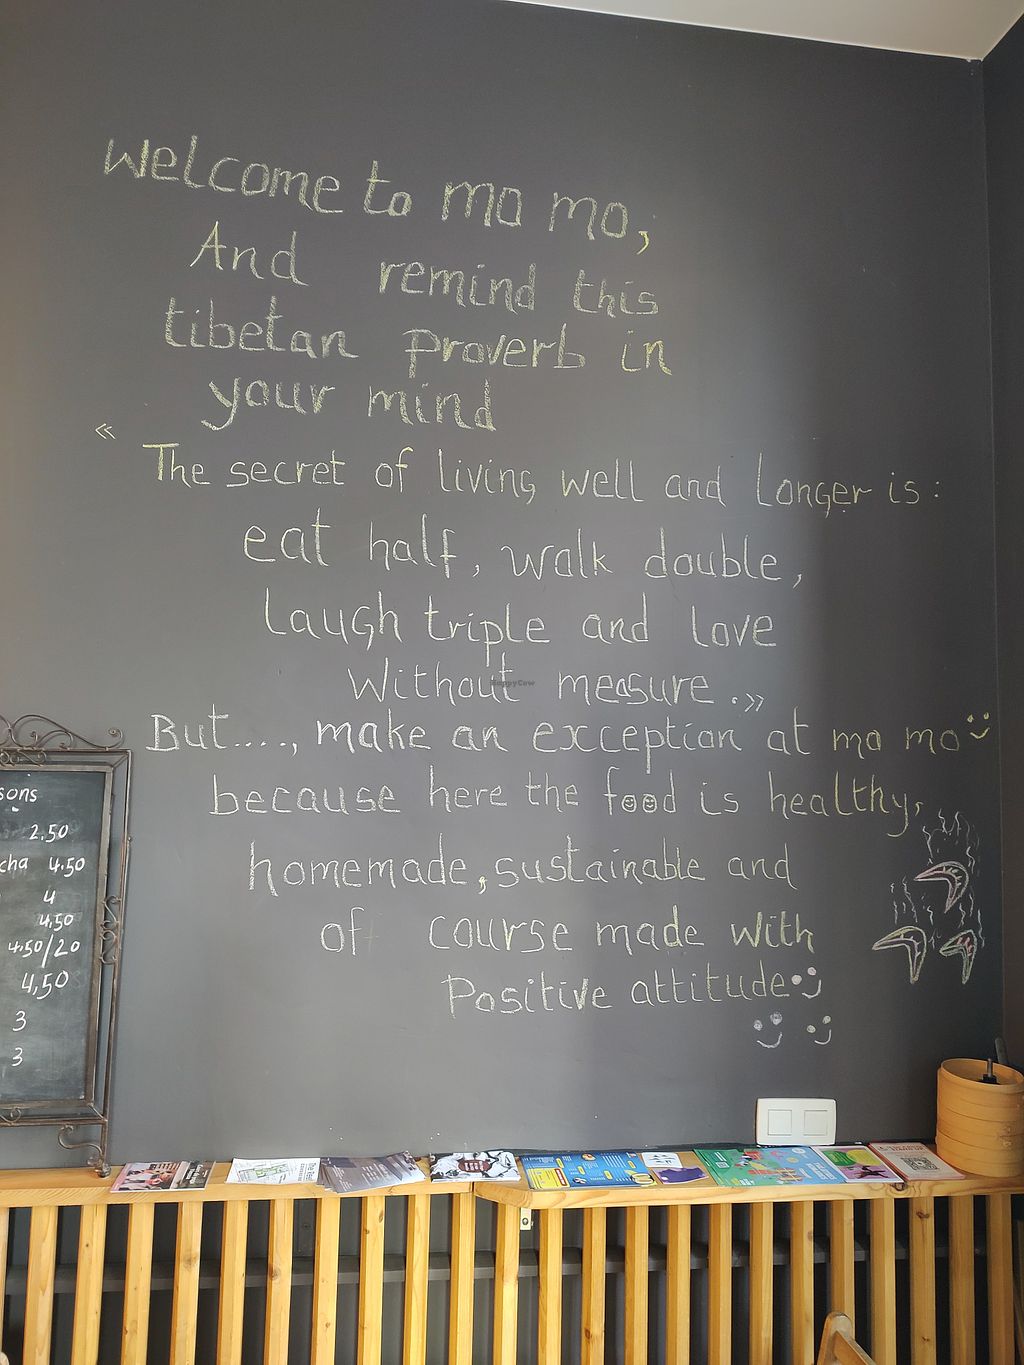 welcome to mo mo,
And remind this
tibetan proverb in
your mind
«
The secret of living well and Longer is:
eat half, walk double,
Laugh triple and Love
without measure.»
But...., make an exception at mo mo
because here the food is healthy,
homemade, sustainable and
of course made with
Positive attitude
HappyCow
sons
2.50
cha 4.50
4
4.50
4.50/20
4,50
3
3